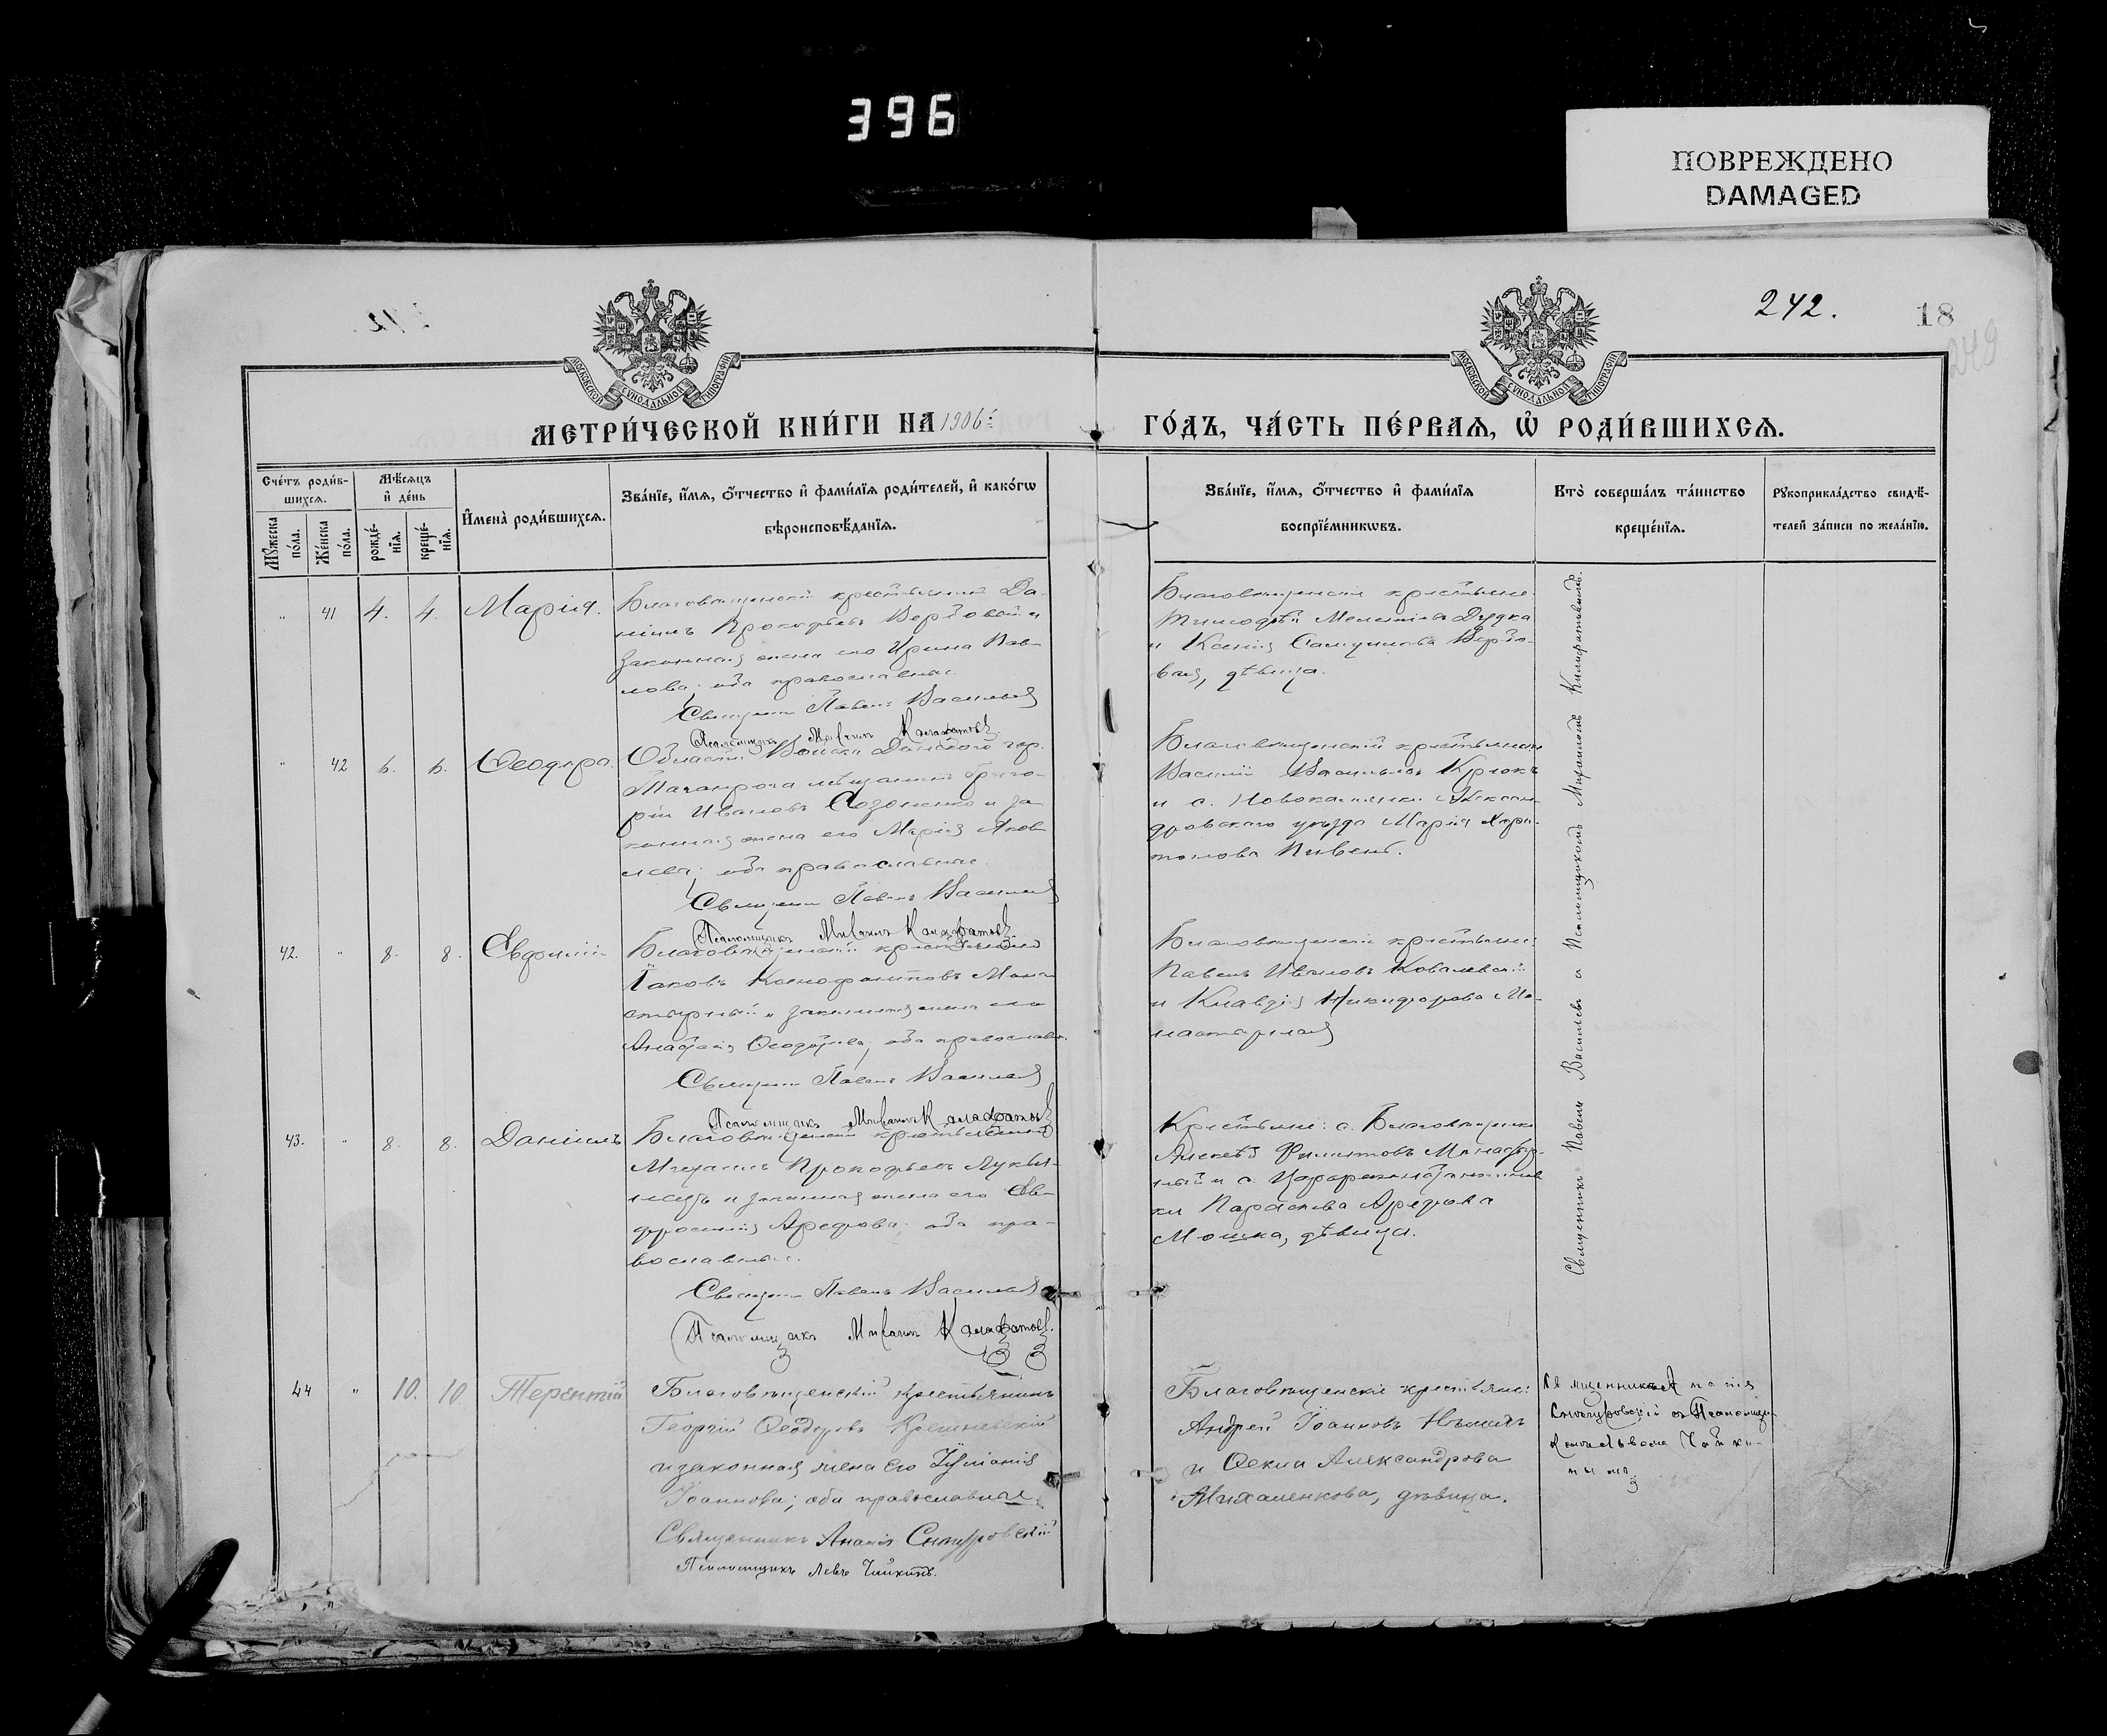 396
ПОВРЕЖДЕНО
DAMAGED
242.
18
249
МОСКОВСКОЙ СѴНОДАЛЬНОЙ ТИПОГРАФІИ
МОСКОВСКОЙ СѴНОДАЛЬНОЙ ТИПОГРАФІИ
МЕТРИ́ЧЕСКОЙ КНИ́ГИ НА 1906
ГО́ДЪ, ЧА́СТЬ ПЕ́РВАЯ, Ѡ҆ РОДИ́ВШИХСЯ.
Сче́тъ роди́в-
шихся.
Мꙋ́жеска
по́ла.
Же́нска
по́ла.
Мѣ́сяцъ
и҆ де́нь
рожде́-
нїя.
креще́-
нїя.
И҆мена̀ роди́вшихся.
Зва́нїе, и҆́мя, ѻ҆́тчество и҆ фами́лїя роди́телей, и҆ како́гѡ
вѣроисповѣ́данїя.
Зва́нїе, и҆́мя, ѻ҆́тчество и҆ фами́лїя
воспрїе́мникѡвъ.
Кто̀ соверша́лъ та́инство
креще́нїя.
Рꙋкоприкла́дство свидѣ́-
телей за́писи по жела́нїю.
„ 41 4. 4. Марія.
Благовѣщенскій крестьянинъ Да-
ніилъ Прокофьевъ Вербовый и
законная жена его Ирина Пав-
лова; оба православные.
Священникъ Павелъ Васильевъ
Псаломщикъ Михаилъ Калафатовъ
Благовѣщенскіе крестьяне:
Тимофей Дудка
и Ксенія Вербо-
вая, дѣвица.
„ 42 6. 6. Ѳеодора.
Области Войска Донского гор.
Таганрога мѣщанинъ Григо-
рій Ивановъ Созоненко и за-
конная жена его Марія Яков-
лева; оба православные.
Священникъ Павелъ Васильевъ
Псаломщикъ Михаилъ Калафатовъ
Благовѣщенскій крестьянинъ
Василій Васильевъ Крюкъ
и с. Новокаменки Алексан-
дровскаго уѣзда Марія Хари-
тонова Пивень.
42. „ 8. 8. Евфимій
Благовѣщенскій крестьянинъ
Іаковъ Ксенофонтовъ Мона-
стырный и законная жена его
Анастасія Ѳеодорова; оба православн.
Священникъ Павелъ Васильевъ
Псаломщикъ Михаилъ Калафатовъ
Благовѣщенскіе крестьяне:
Павелъ Ивановъ Ковалевскій
и Клавдія Никифорова Мо-
настырная
43. „ 8. 8. Даніилъ
Благовѣщенскій крестьянинъ
Михаилъ Прокофьевъ Лукья-
нецъ и законная жена его Ев-
фросинія Арефова; оба пра-
вославные.
Священникъ Павелъ Васильевъ
Псаломщикъ Михаилъ Калафатовъ
Крестьяне: с. Благовѣщенки
Алексѣй Филиповъ Монастыр-
ный и с. Цареконстантинов-
ки Параскева Арефова
Мошка, дѣвица.
Священникъ Павелъ Васильевъ съ Псаломщикомъ Михаиломъ Калафатовымъ.
44 „ 10. 10 Терентій
Благовѣщенскій крестьянинъ
Георгій Ѳеодоровъ Кремлевскій
и законная жена его Іуліанія
Іоаннова; оба православные.
Священникъ Ананія Снегуровскій
Псаломщикъ Левъ Чайкинъ.
Благовѣщенскіе крестьяне:
Андрей Іоанновъ Нѣмичъ
и Ѳекла Александрова
Михаленкова, дѣвица.
Священникъ Ананія
Снегуровскій съ Псаломщи-
комъ Львомъ Чайки-
нымъ